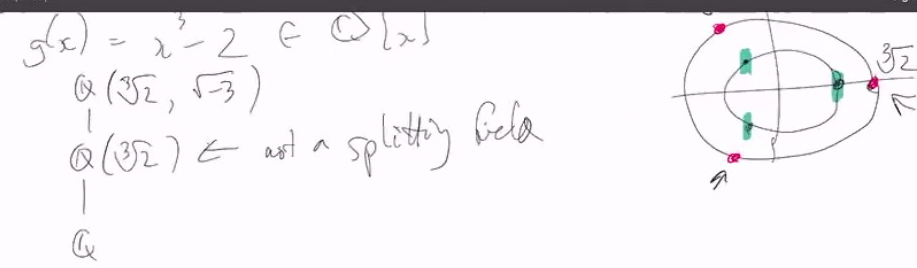 g(x) = x³ - 2 ∈ ℚ[x]
ℚ(∛2, √-3)
ℚ(∛2) ← not a splitting field
ℚ
∛2